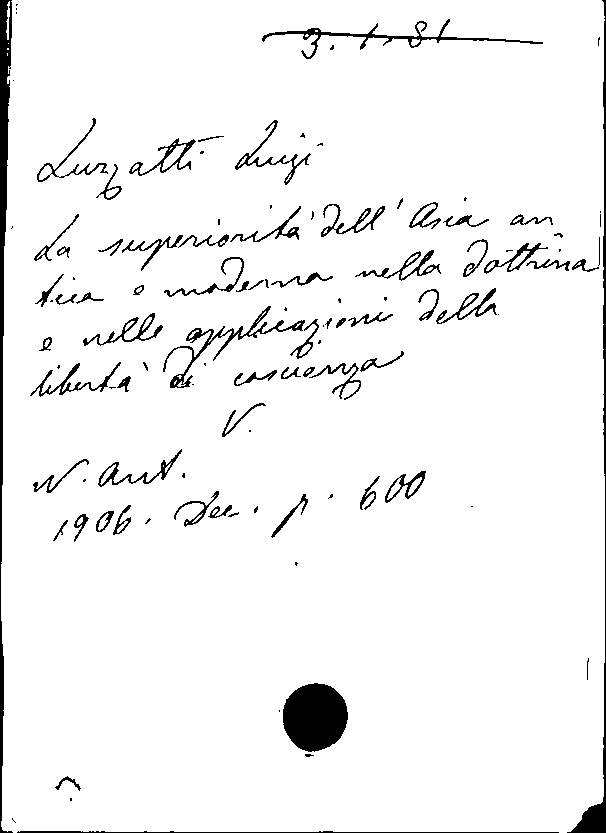 3. 1. 81
Luzzatti Luigi
La superiorità dell' Asia an
tica e moderna nella dottrina
e nelle applicazioni della
libertà di coscienza
V.
N. Ant.
1906. Dec. p. 600